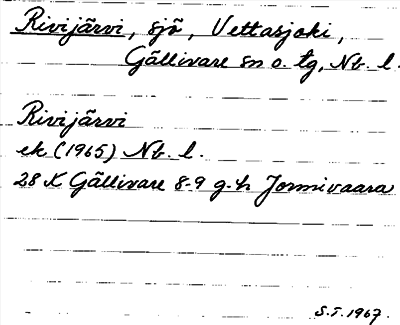 Rivijärvi, sjö, Vettasjoki,
Gällivare sn o. tg, Nb. l.
Rivijärvi
ek (1965) Nb. l.
28 K Gällivare 8-9 g-h Jormivaara
S.T. 1967.